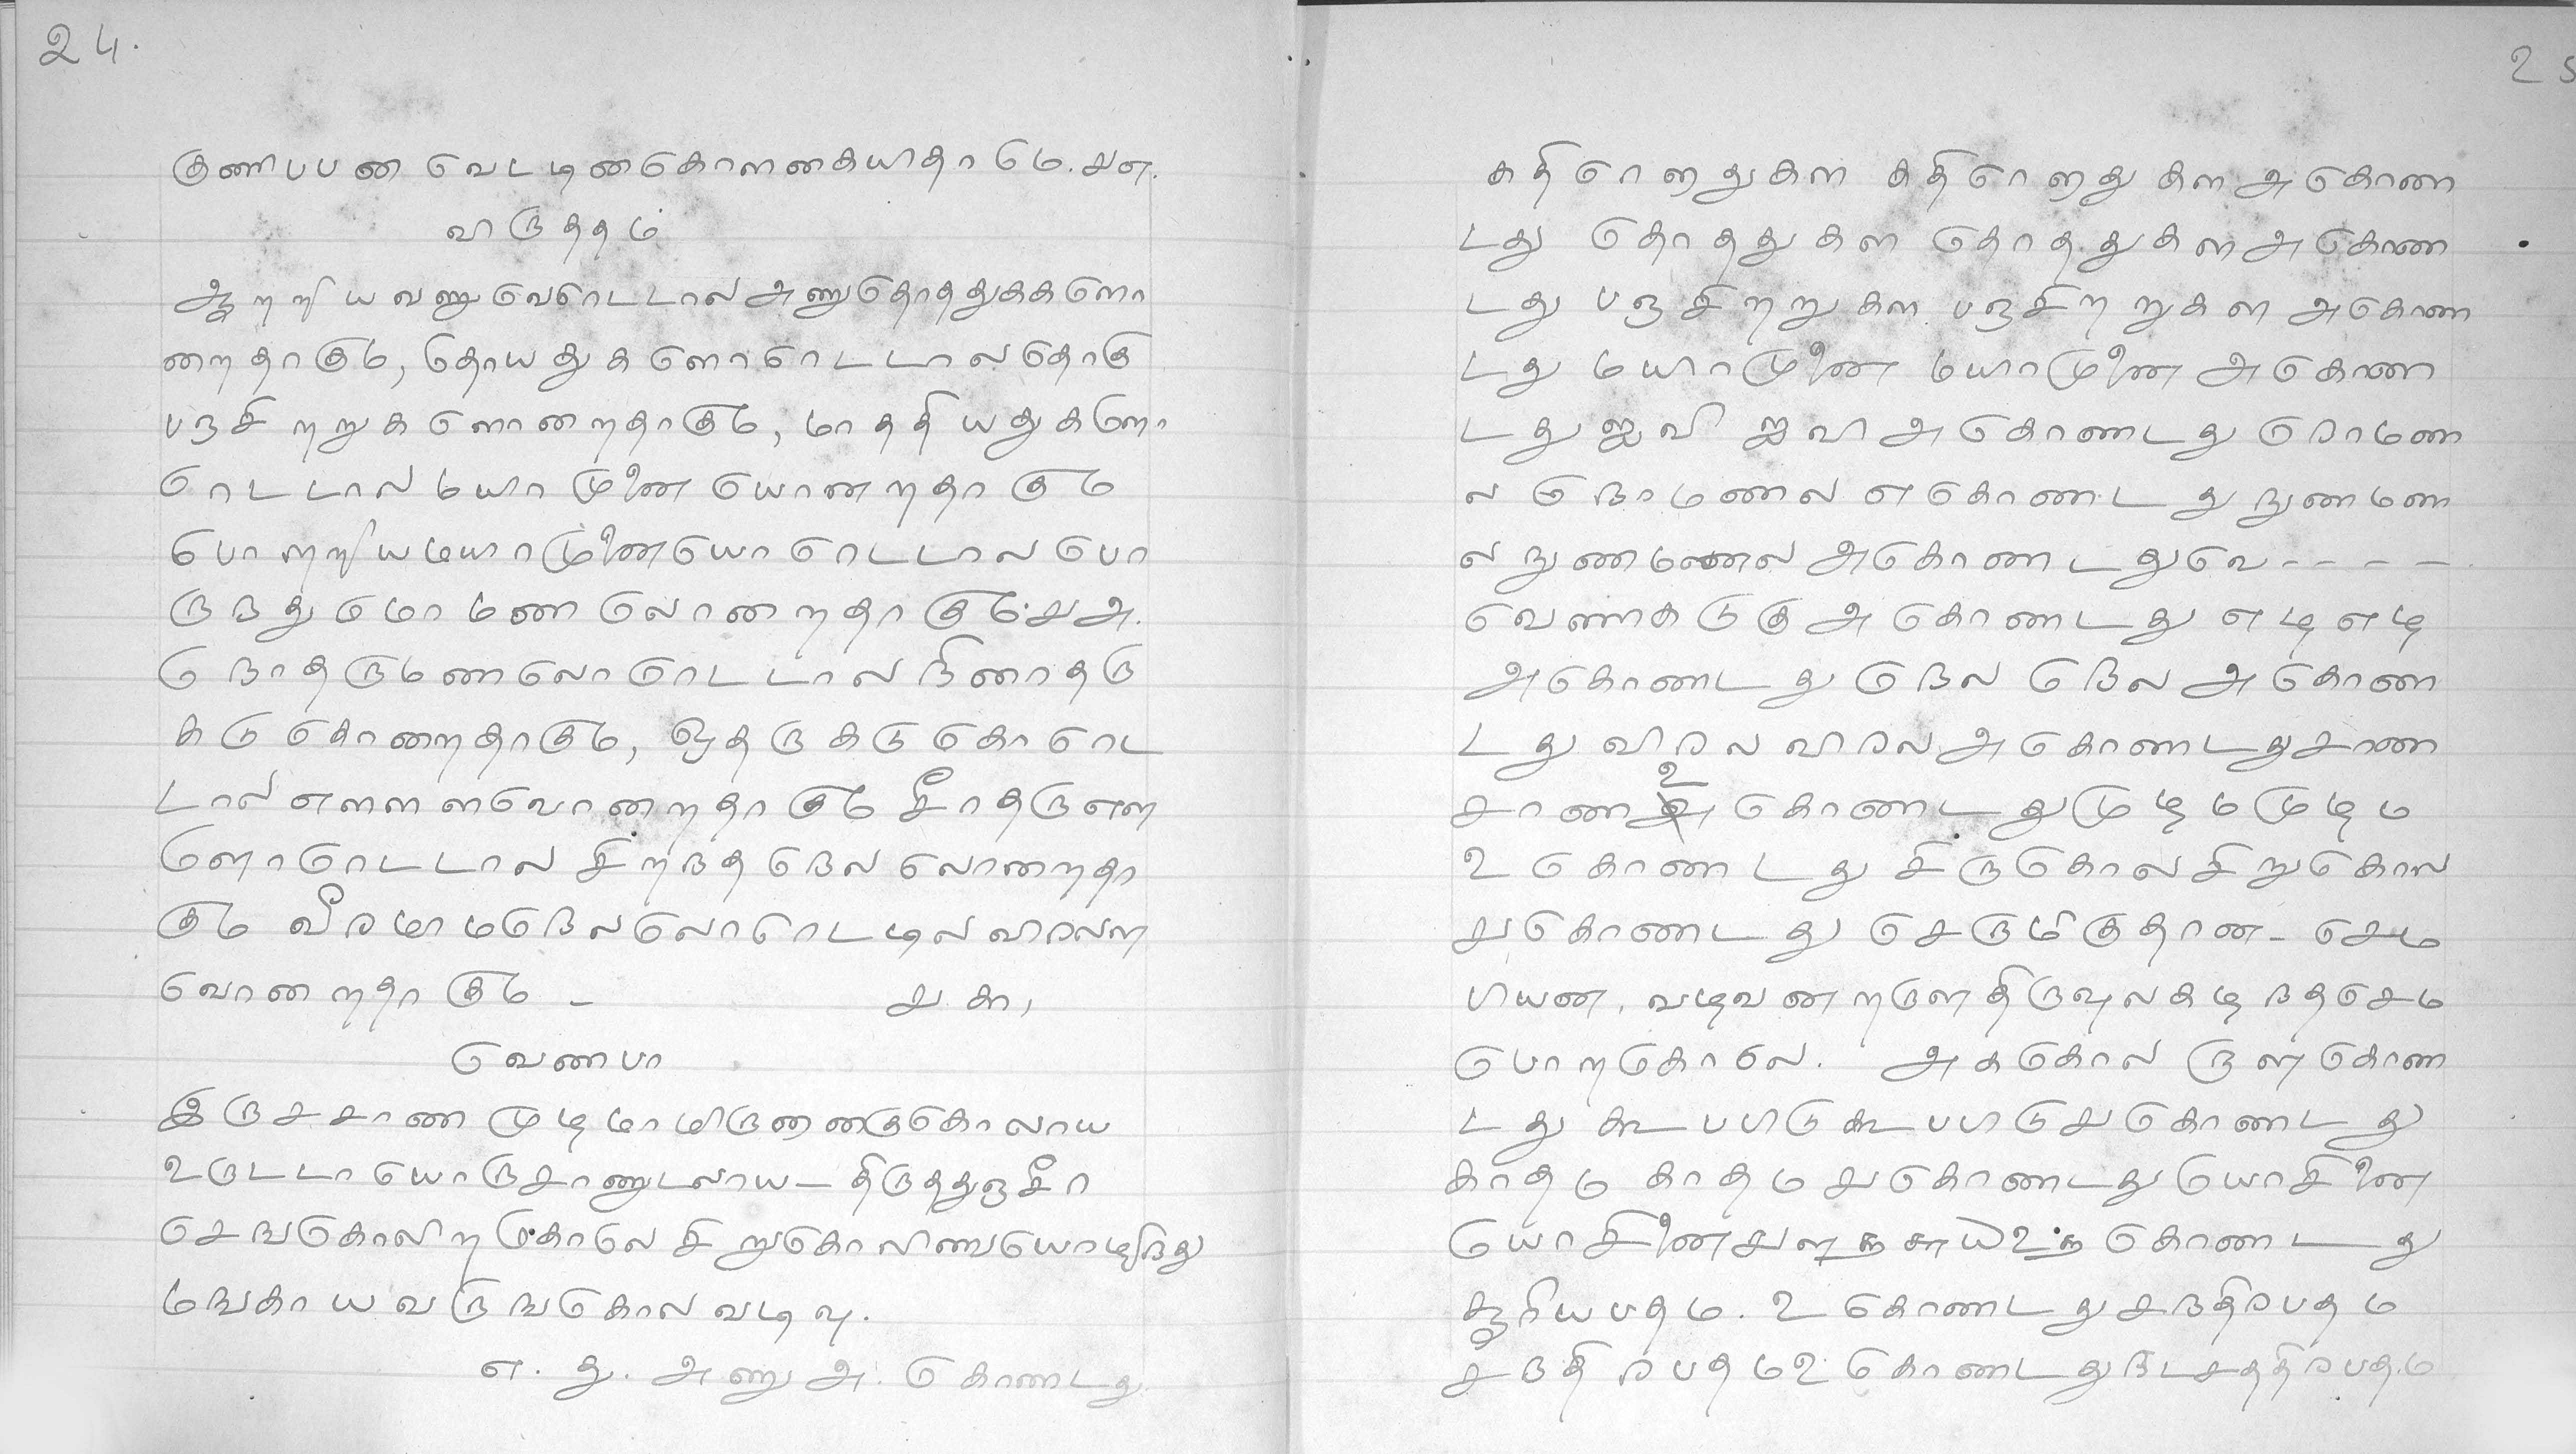 24.
குணிபபன வெடடினகொளகையிதாமெ.சஎ.
விருததம்
ஆறறியவணுவெடெடடால் அணுதொததுககளொ
னறதாகும, தொயதுகளொடெடடாலதொகு
பஞசிறறுகளொனறதாகும, மாததியதுகளொ
டெடடால்மயிாமுனையொனறதாகும
பொறறியமயாமுனையொடெடடாலபொ
ருநதுமொமணலொனறதாகும்சஅ.
நொதருமணலொடெடடாலநினாதரு
கடுகொனறதாகும, ஒதருகடுகொடெட
டால் எளளளவொனறதாகும சீாதருஎள
ளொடெடடாலசிறநதநெலலொனறதா
கும வீரமாமநெலலொடெடடிலவிரலள
வொனறதாகும - சகூ,
வெணபா
இருசசாணமுடிமாமிருனனகுகொலாய
உருடடாயொருசாணுடலாய- திருததுஞசீா
செஙகொலிறகொலெசிறுகொலிணுயொழிநது
மஙகாயவருஙகொலவடிவு.
எ. து. அணு அ. கொணடது
25
கதிரெளதுகள கதிரெளதுகளஅகொண
டது தொதுகள தொததுகளஅகொண
டது பஞசிறறுகள பஞசிறறுகள அகொண
டது மயிாமுனை மயாமுனை அகொண
டது ஐவி ஐவி அகொணடது ரொமண
ல நொமணல எகொணடதுநுணமண
லநுணமணல அகொணடதுவெ----
வெணகடுகு அகொணடது எடி எடி
அகொணடது நெல நெல அகொண
டது விரல விரலஅகொணடதுசாண
சாணஉகொணடதுமுடிமமுடிம
உகொணடது சிருகொலசிறுகொல
சகொணடது செருமிகுதான- செம
பியன, வடிவனறருளதிருவுலகடிநதசெம
பொறகொலெ. அககொல ருளகொண
டது கூபபிடுகூபபிடுசகொணடது
காதம காதம சகொணடதுயொசினை
கொணடது
சூரியபதம. உகொணடதுசநதிரபதம
சநதிரபதமஉகொணடதுநடசததிரபதம